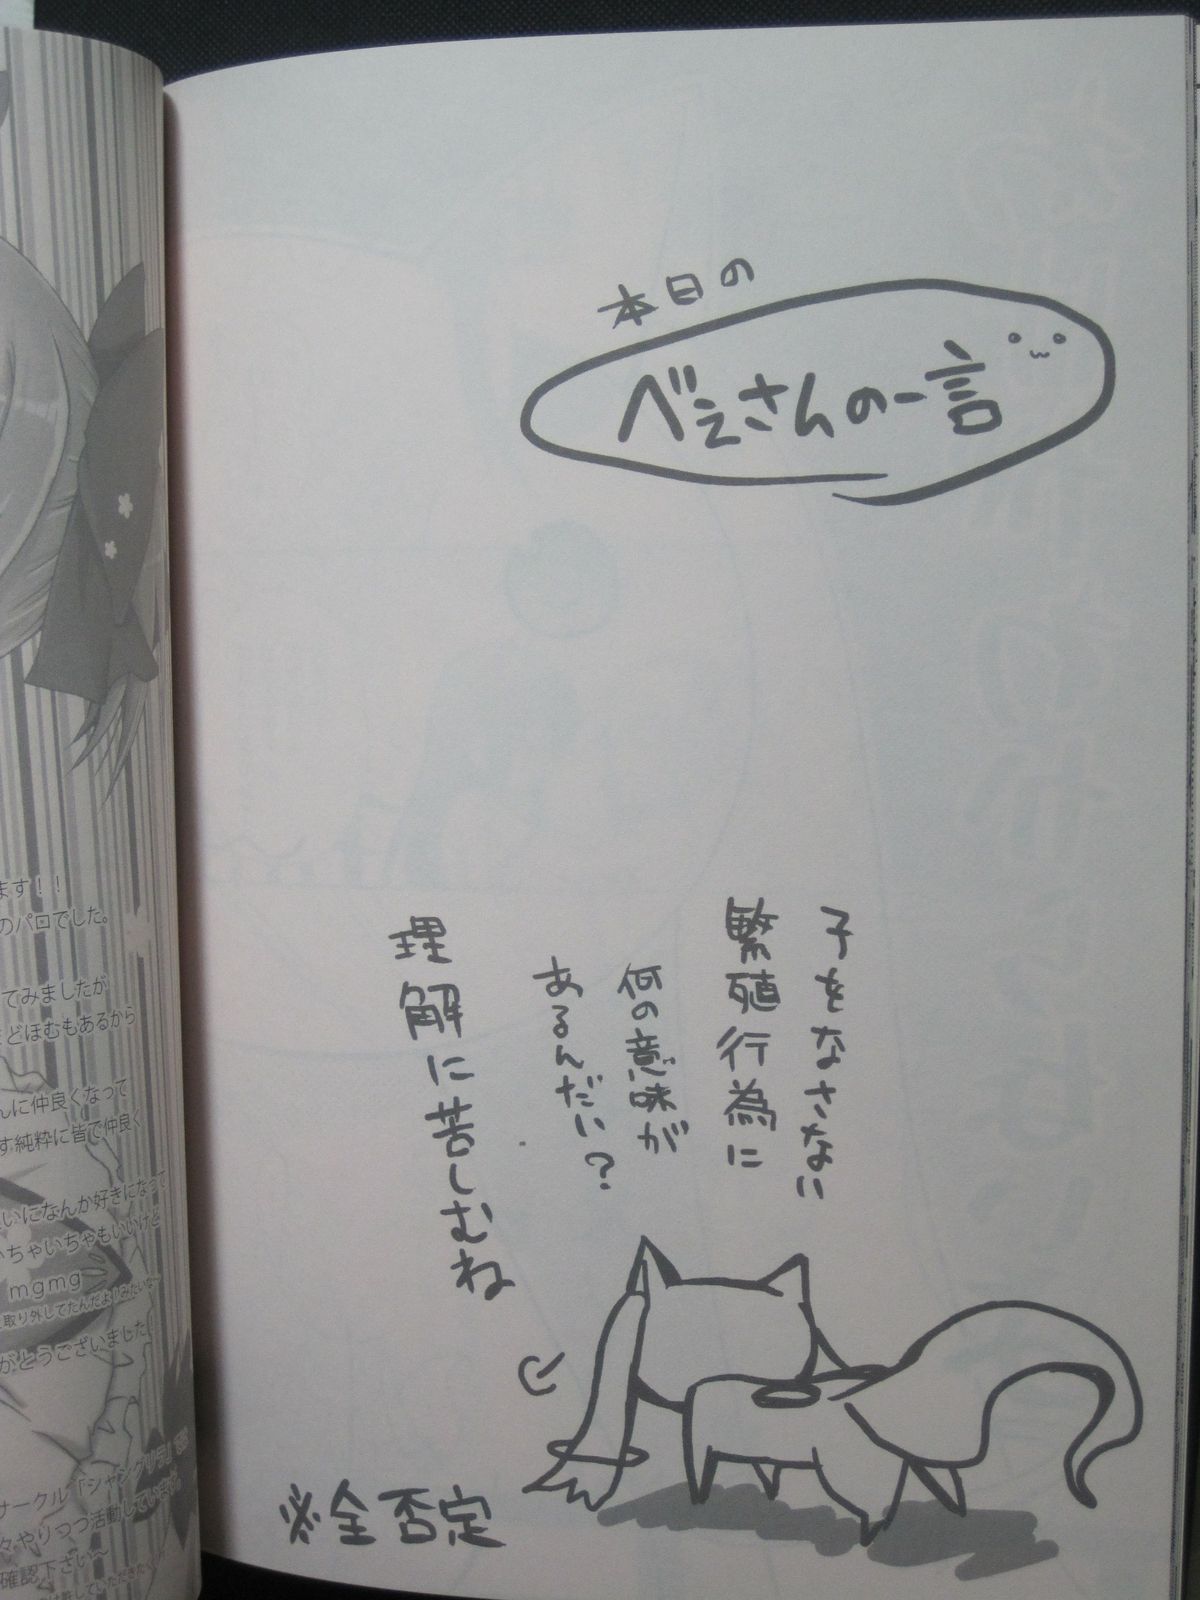 本日の
べえさんの一言
子をなさない
繁殖行為に
何の意味が
あるんだい?
理解に苦しむね
※全否定
ます!!
のパロでした。
てみましたが
まどほむもあるから
んに仲良くなって
す純粋に皆で仲良く
いになんか好きになって
いちゃいちゃもいいけど
mgmg
取り外してたんだよ!みたいな~
がとうございました!
サークル「シャングリラ」
々やりつつ活動しています。
確認下さい~